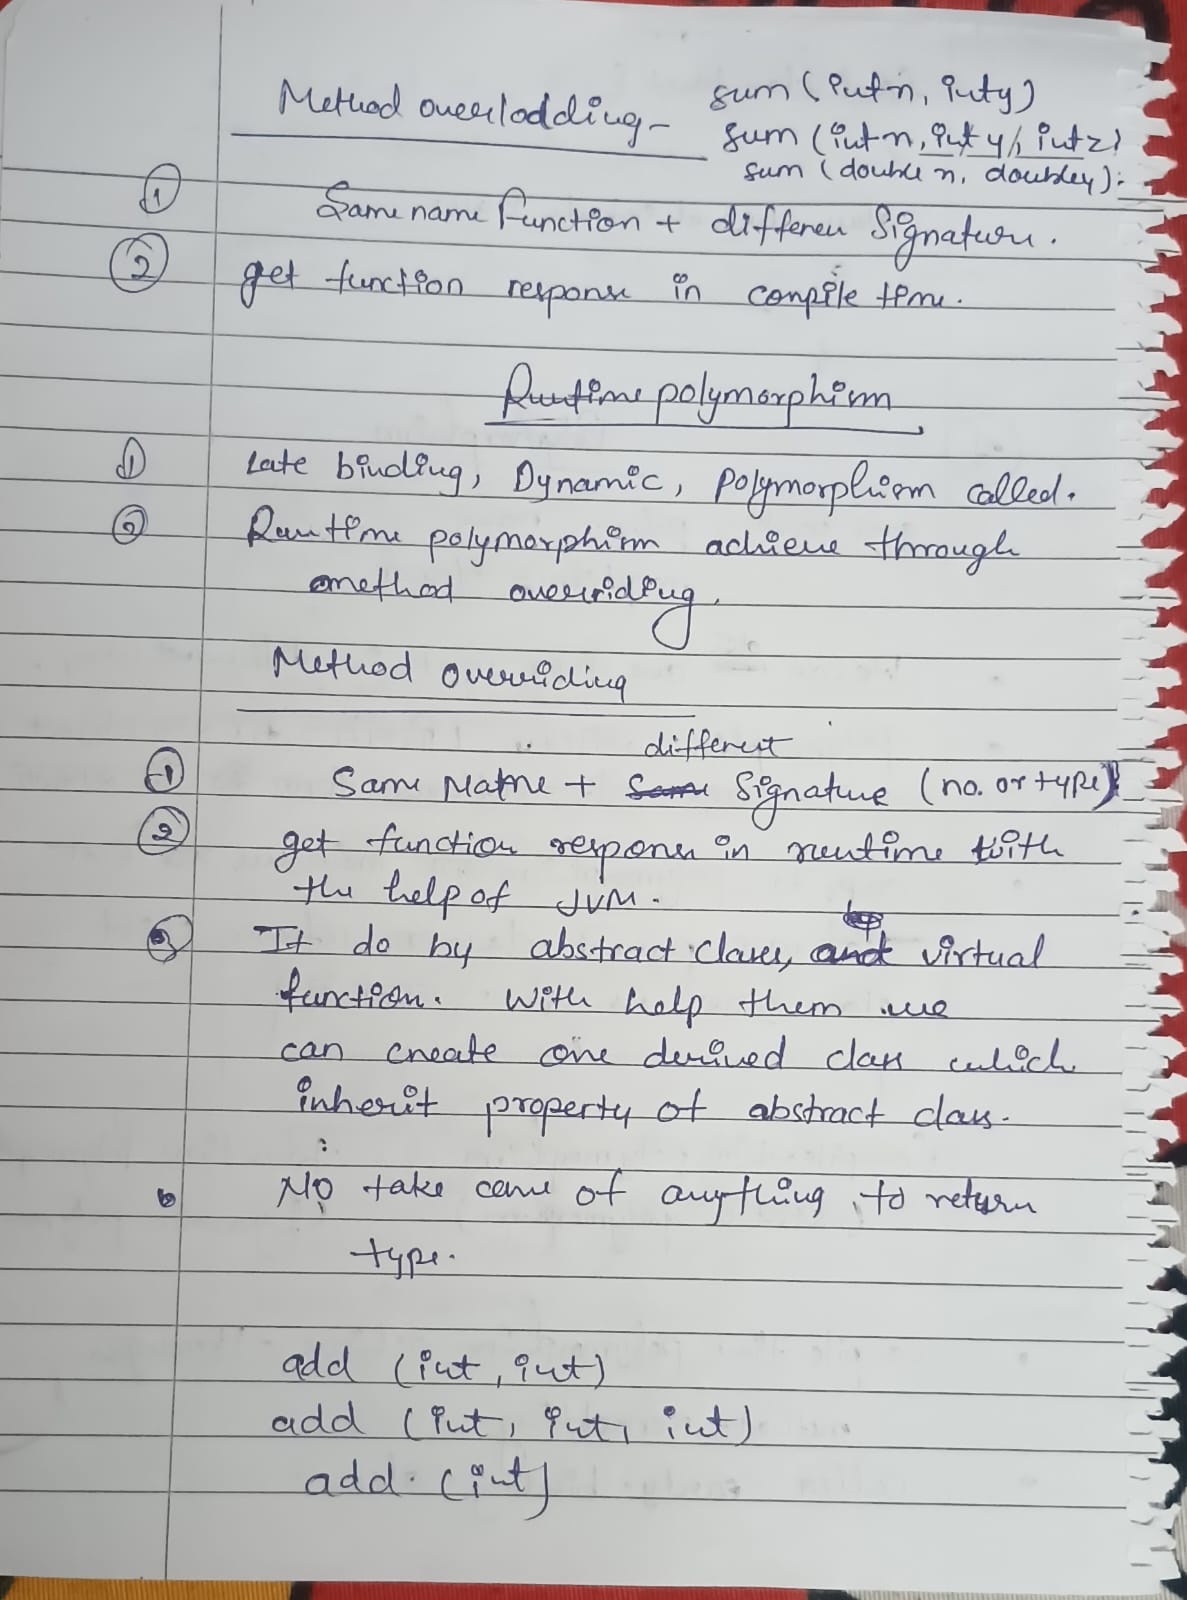 Method overlodding - sum (int n, int y)
sum (int n, int y, int z)
sum (double n, doubley);
① Same name function + differen Signature.
② get function response in compile time.
Runtime polymorphism
① Late binding, Dynamic, polymorphism called.
② Runtime polymorphism achieve through
method overriding.
Method overriding
different
① Same Name + Same Signature (no. or type)
② get function response in runtime with
the help of JVM.
③ It do by abstract classes, and virtual
function. With help them we
can create one derived class which
inherit property of abstract class.
No take care of anything, to return
type.
add (int, int)
add (int, int, int)
add. (int)